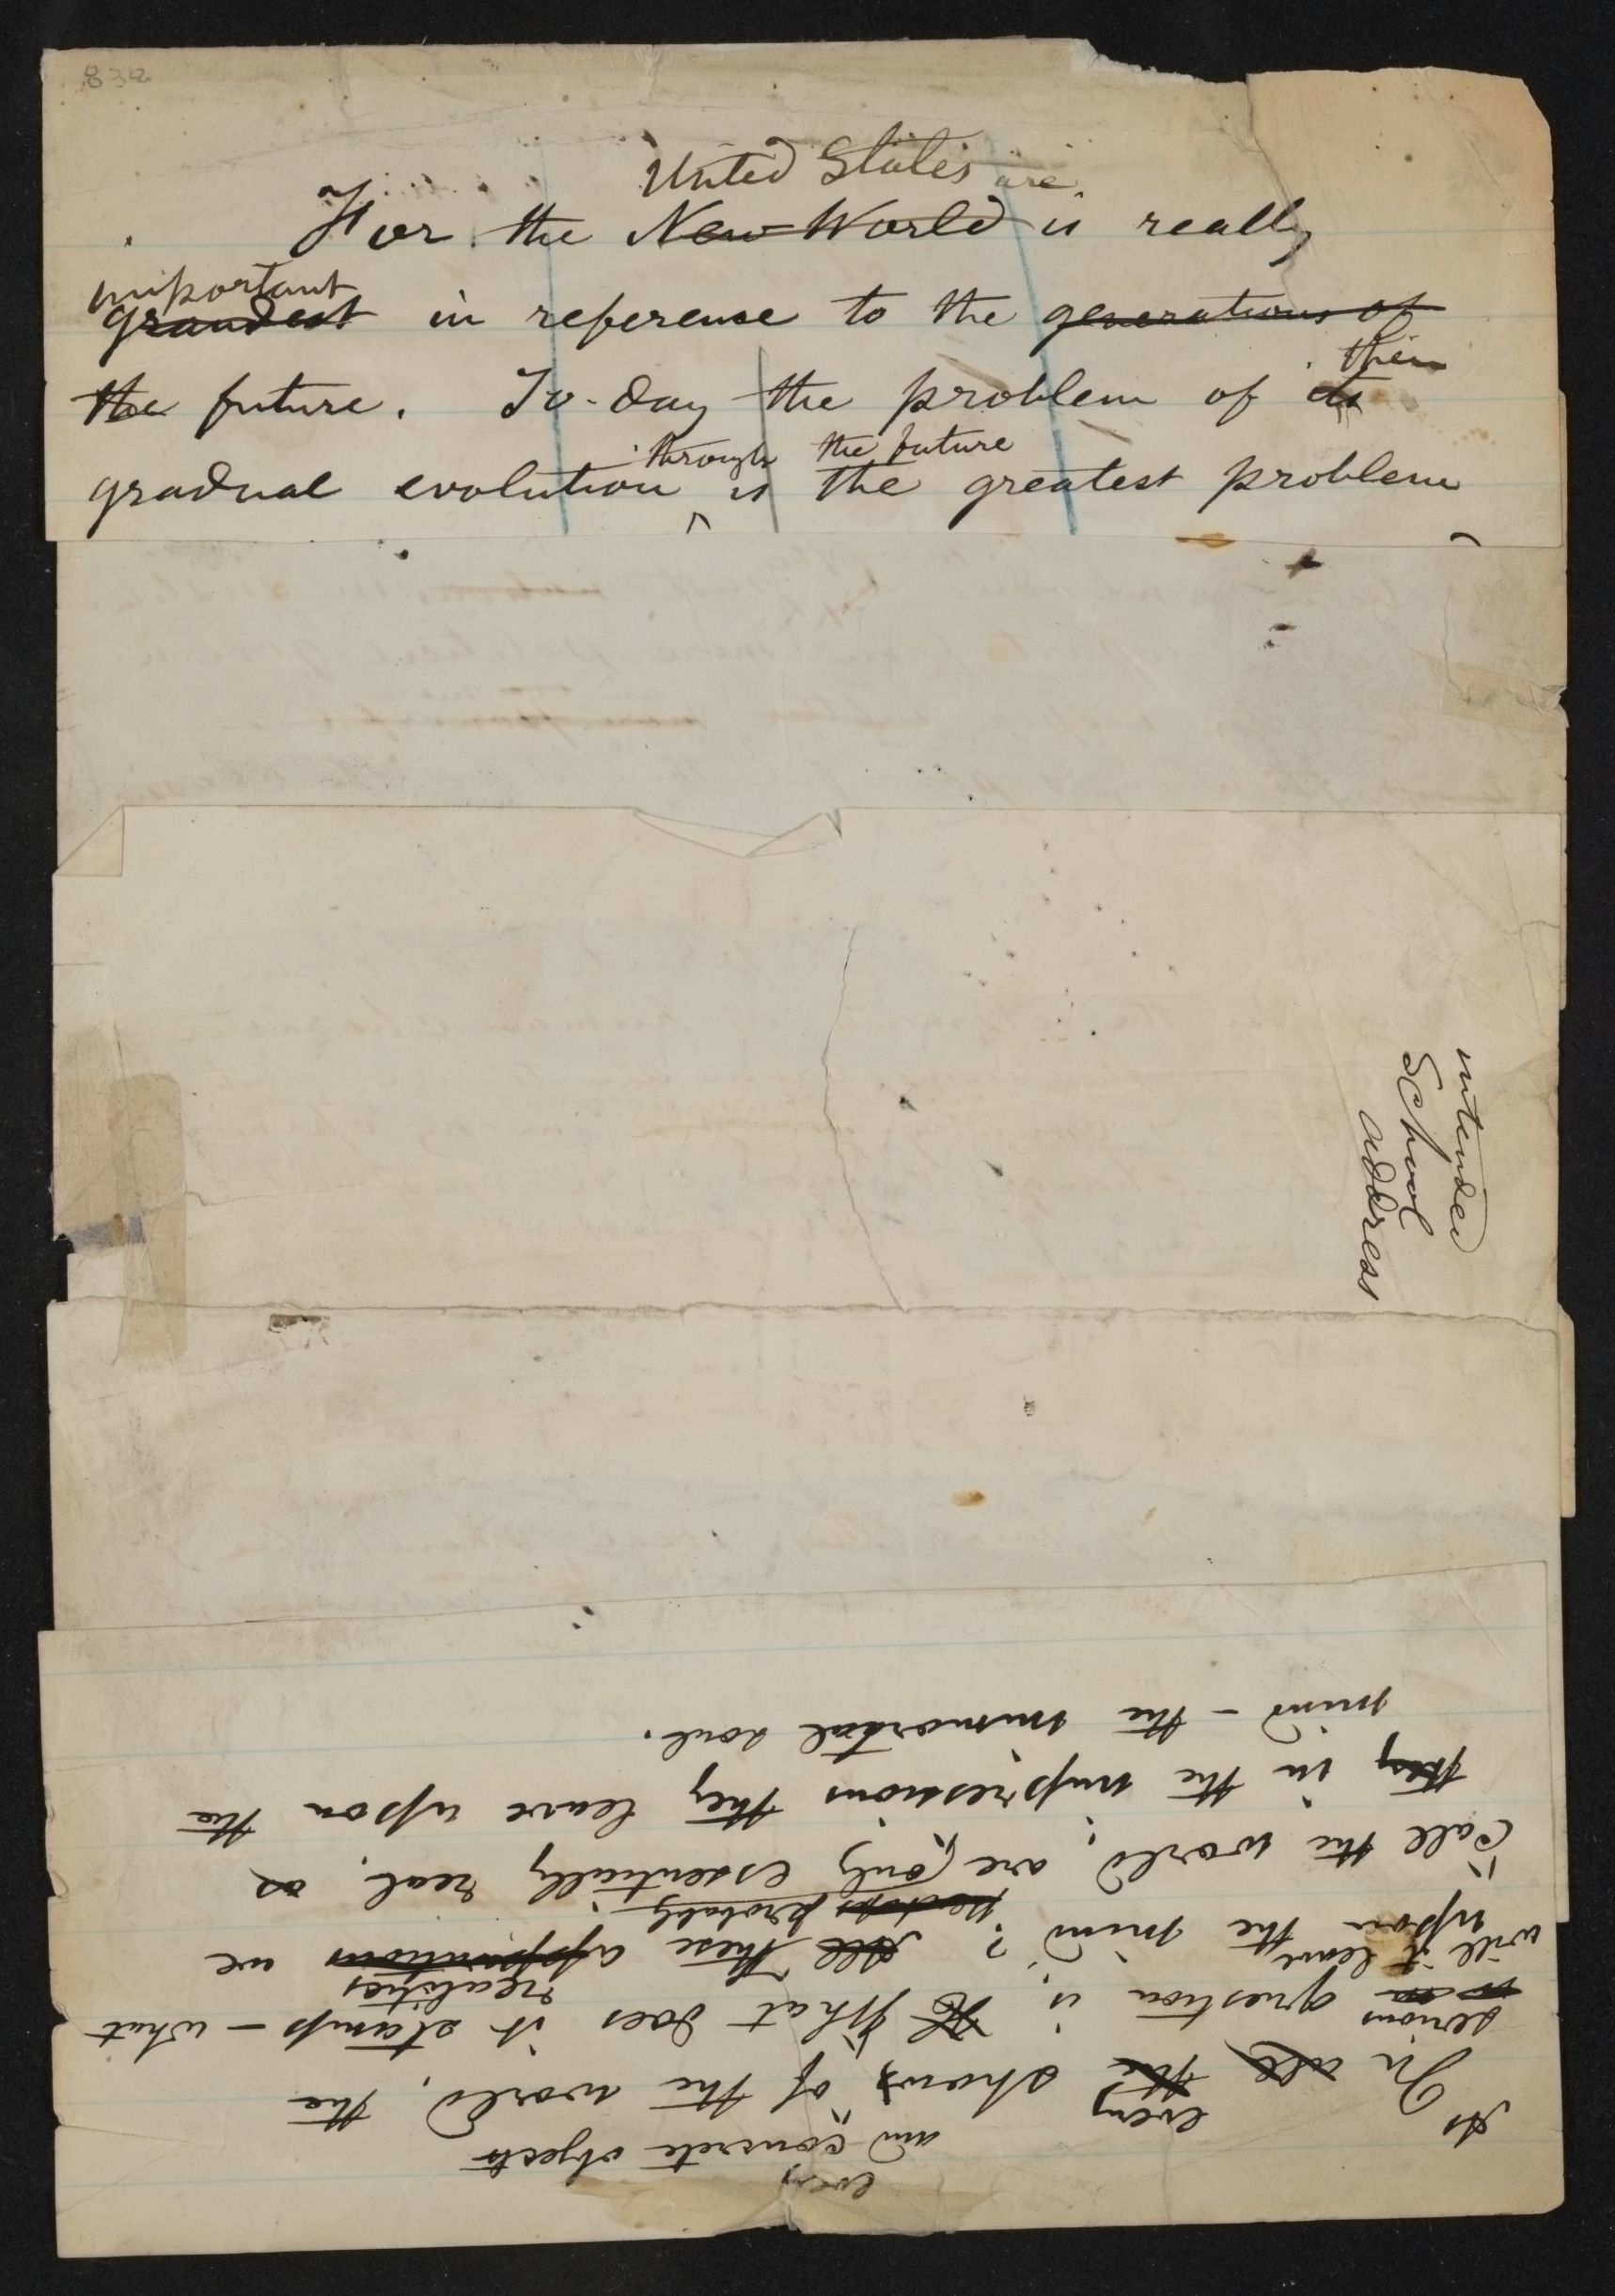 832
United States are
For the New World is really
important
grandest in reference to the generations of
their
the future. To-day the problem of its
through the future
gradual evolution ^ is the greatest problem
intended
School
address
every
and concrete objects
every
In all the shows of the world, the
serious question is, What does it stamp – what
will it leave realities
upon the mind? All these apparitions we
perhaps probably
call "the world," are (only essentially real, as
they in the impressions they leave upon the
mind – the immortal soul.